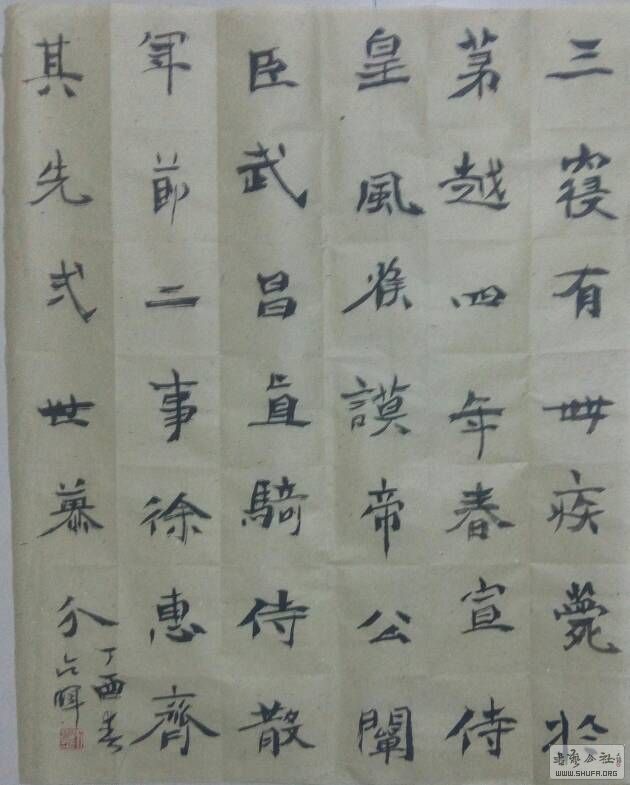 三寝有疾薨於
第越四年春宣侍
皇風謨帝公闡
臣武昌直騎侍散
軍節二事徐惠齊
其先式世慕分
丁酉春
占暉
书法公社
WWW.SHUFA.ORG